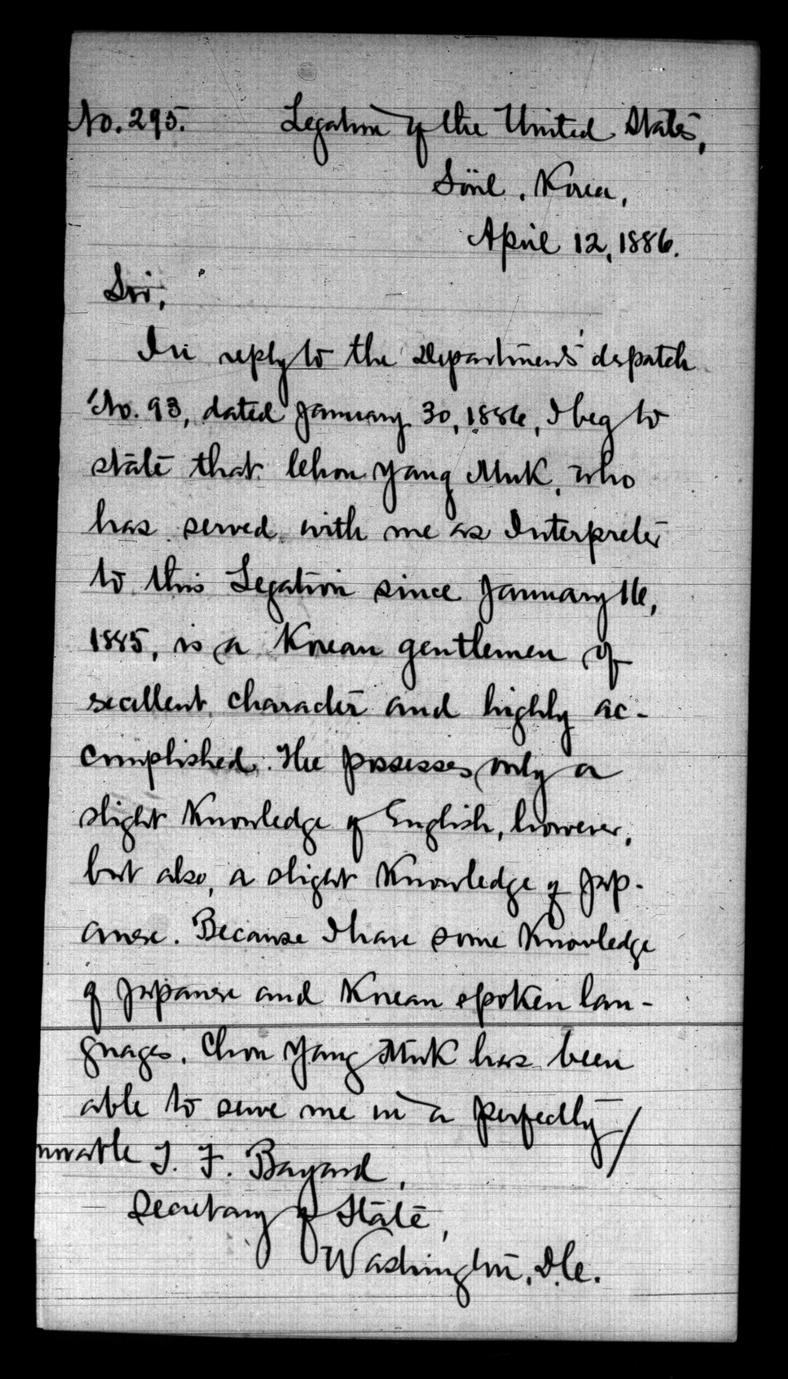 No. 295. Legation of the United States,
Söul, Korea,
April 12, 1886.
Sir;
In reply to the Department's dispatch
No. 93, dated January 30, 1886, I beg to
state that Chon Yang Muk, who
has served with me as Interpreter
to this Legation since January 16,
1885, is a Korean gentlemen of
excellent character and highly ac-
complished. He possesses only a
slight knowledge of English, however,
but also, a slight knowledge of Jap-
anese. Because I have some knowledge
of Japanese and Korean spoken lan-
guages, Chon Yang Muk has been
able to serve me in a perfectly/
norable T. F. Bayard,
Secretary of State,
Washington, D.C.